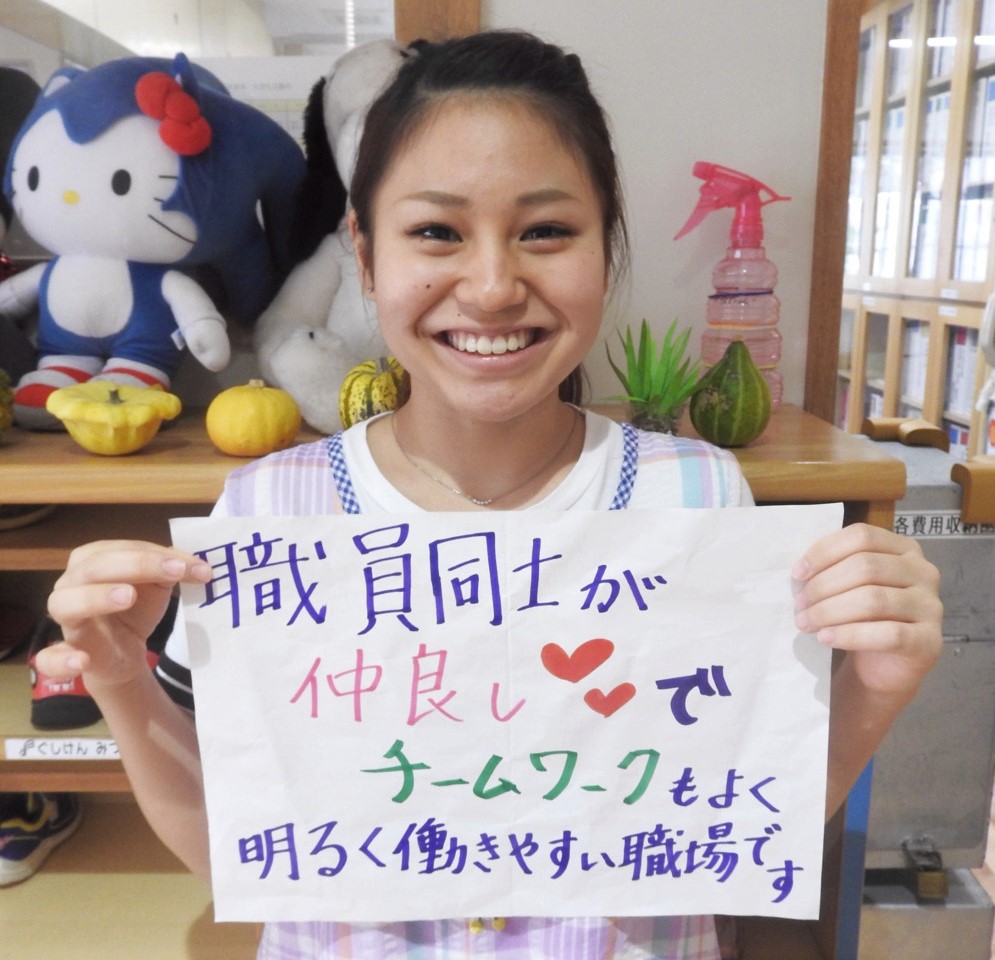 職員同士が
仲良し♥♥で
チームワークもよく
明るく働きやすい職場です
各費用収納
ぐしけん みつ